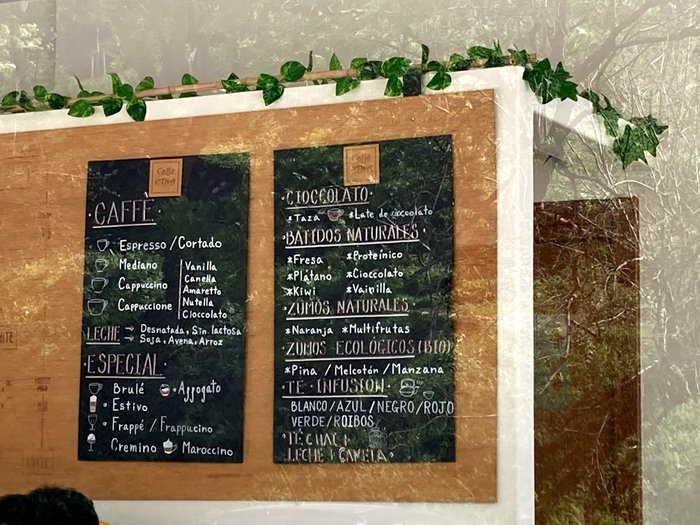 Caffè
CAFFÈ
Espresso / Cortado
Mediano
Cappuccino
Cappuccione
Vanilla
Canella
Amaretto
Nutella
Cioccolato
LECHE → Desnatada, Sin lactosa
→ Soja, Avena, Arroz
ESPECIAL
Brulé • Affogato
• Estivo
• Frappé / Frappucino
Cremino Maroccino
Caffè
CIOCCOLATO
*Taza *Late de cioccolato
BATIDOS NATURALES
*Fresa *Proteínico
*Plátano *Cioccolato
*Kiwi *Vainilla
ZUMOS NATURALES
*Naranja *Multifrutas
ZUMOS ECOLÓGICOS (BIO)
*Pina / Melcotón / Manzana
TÉ · INFUSION
BLANCO/AZUL/NEGRO/ROJO
VERDE/ROIBOS/
TÉ CHAI
LECHE + CANELA